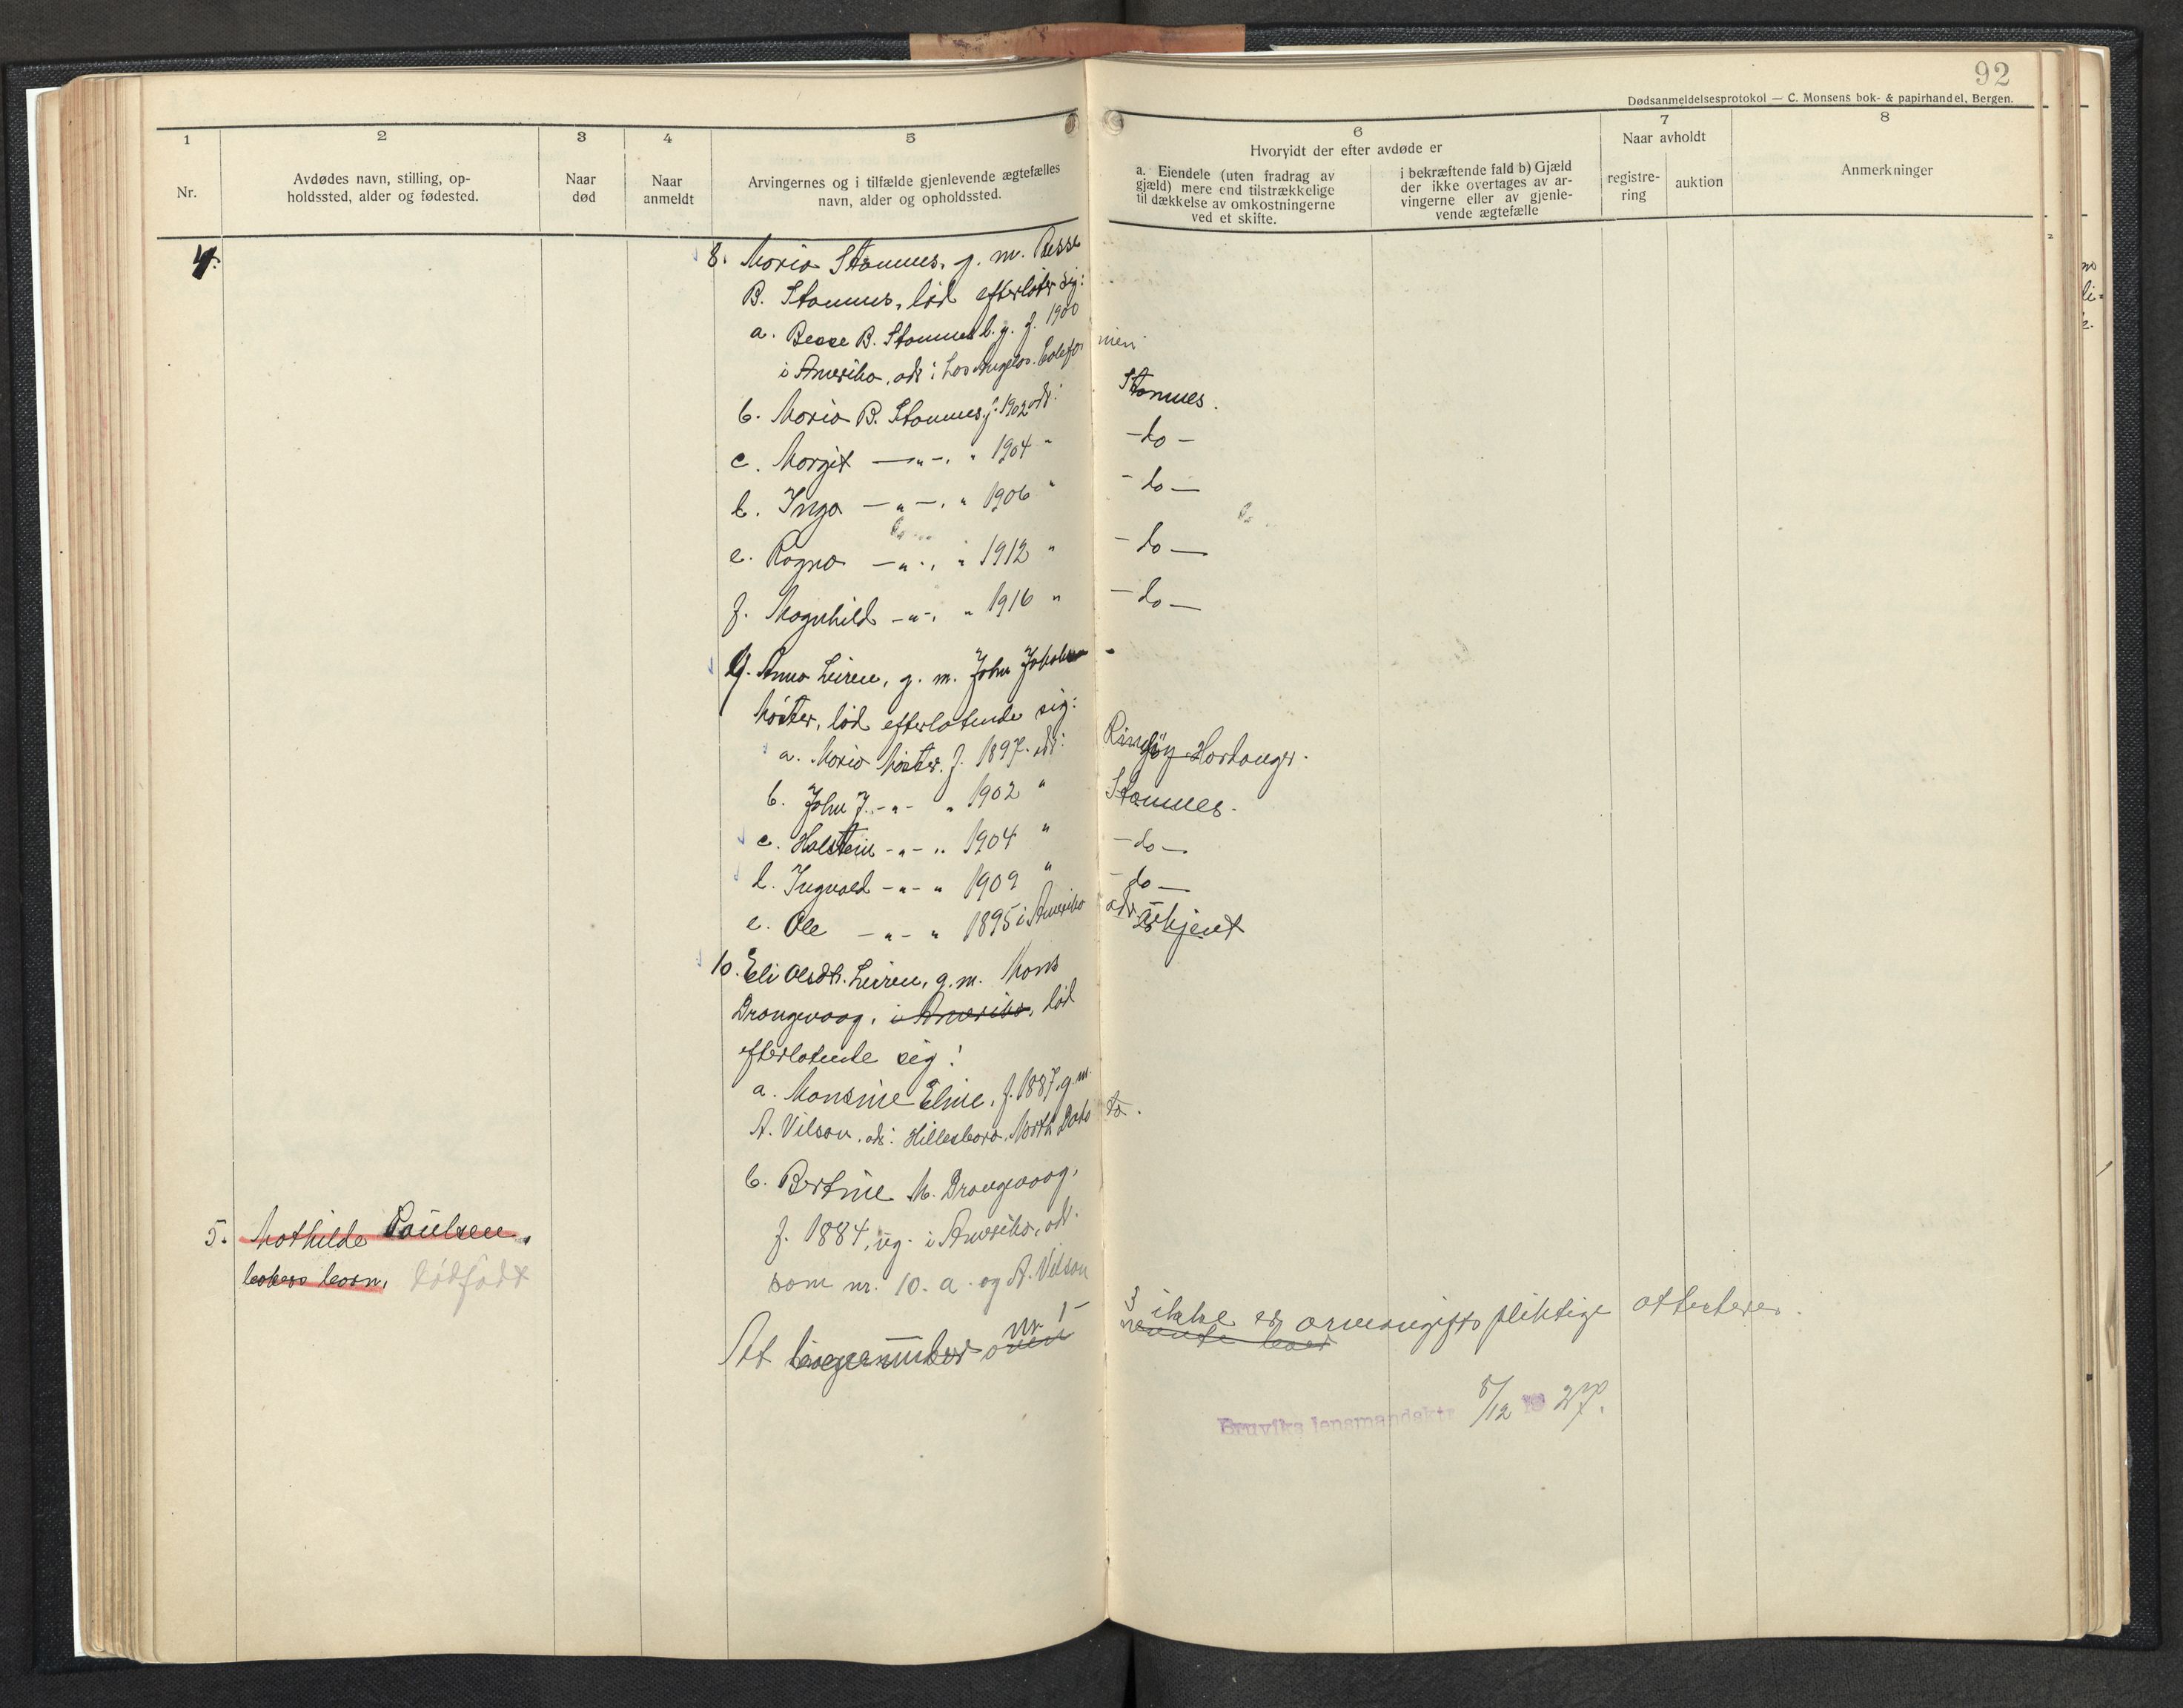 92
Dødsanmeldelsesprotokol — C. Monsens bok- & papirhandel, Bergen.
1 2 3 4 5 6 7 8
Nr.
Avdødes navn, stilling, op-
holdssted, alder og fødested.
Naar
død
Naar
anmeldt
Arvingernes og i tilfælde gjenlevende ægtefælles
navn, alder og opholdssted.
Hvorvidt der efter avdøde er
a. Eiendele (uten fradrag av
gjæld) mere end tilstrækkelige
til dækkelse av omkostningerne
ved et skifte.
i bekræftende fald b) Gjæld
der ikke overtages av ar-
vingerne eller av gjenle-
vende ægtefælle
Naar avholdt
registre-
ring
auktion
Anmerkninger
4. 8. Maria Stamnes, g. m. Besse
B. Stamnes, død efterlater sig:
a. Besse B. Stamnes b. g. f. 1900
i Amerika, adr: Los Angelos. Californien
b. Maria B. Stamnes, f. 1902 adr: Stamnes.
c. Margit —"—, " 1904 " —do—
d. Inga —"—, " 1906 " —do—
e. Ragna —"—, " 1912 " —do—
f. Magnhild —"—, " 1916 " —do—
9. Anna Leiren, g. m. John
død efterlatende sig:
a. Maria f. 1897. adr: Hardanger.
b. John J. —"— " 1902 " Stamnes.
c. Halstein —"— " 1904 " —do—
d. Ingvald —"— " 1909 " —do—
e. Ole —"— " 1895 i Amerika adr. ukjent
10. Eli Olsdtr. Leiren, g. m. Mons
Drangevaag, i Amerika, død
efterlatende sig:
a. Monsine Eline, f. 1887, g. m.
A. Vilson, adr: Hillesboro, North Dakota.
b. Bertine M. Drangevaag,
f. 1884, ug. i Amerika, adr.
som nr. 10. a. og A. Vilson
5. Mathilde Paulsen,
barn, dødfødt
At nr. 5 ikke er arveavgiftspliktige attesteres.
Bruviks lensmandsktr 5/12 1927.